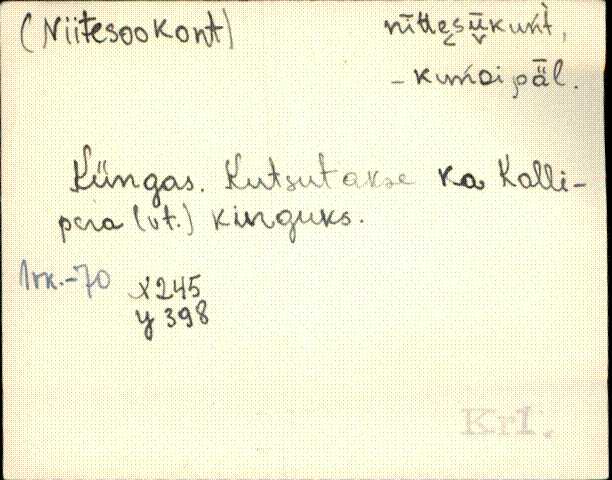 (Niitesookont)
nīttesūkunt,
-kunoipäl.
Küngas. Kutsutakse ka Kolli-
pera (vt.) kinguks.
1rk.-70
X245
y 398
Kr1.